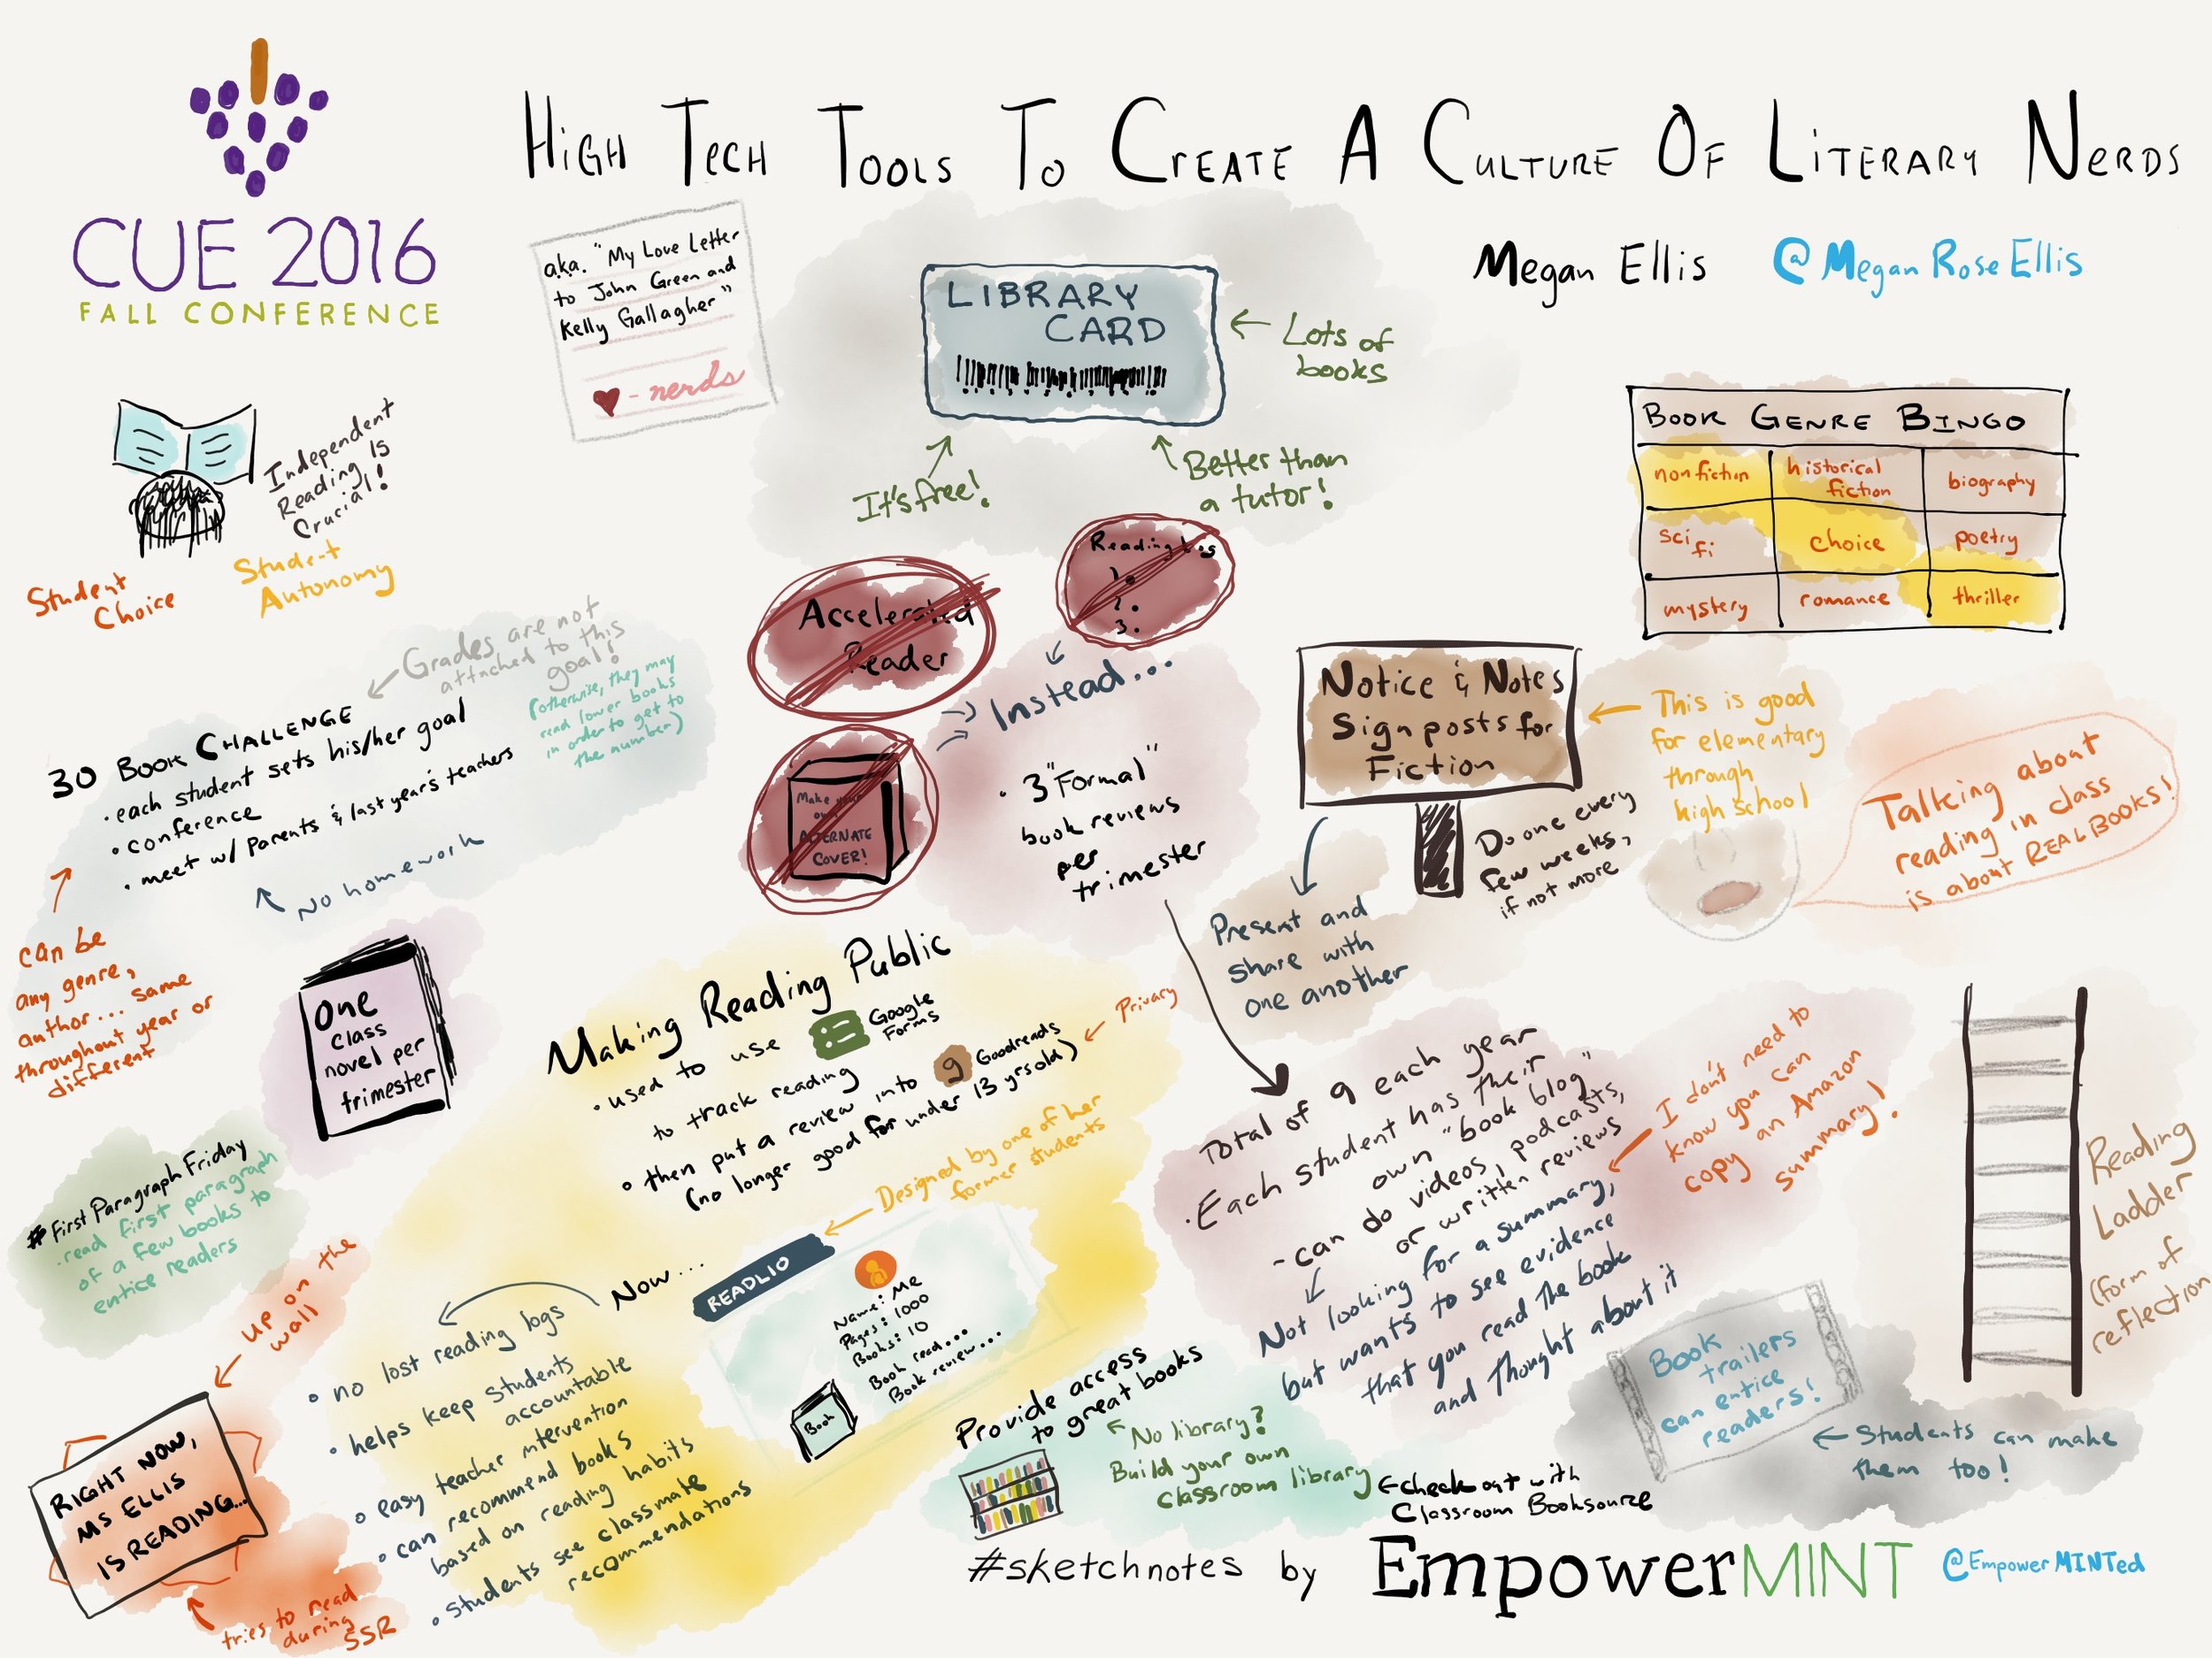 CUE 2016
FALL CONFERENCE
HIGH TECH TOOLS TO CREATE A CULTURE OF LITERARY NERDS
Megan Ellis @MeganRoseEllis
aka. "My Love Letter
to John Green and
Kelly Gallagher"
- nerds
LIBRARY
CARD
Lots of
books
It's free!
Better than
a tutor!
BOOK GENRE BINGO
nonfiction
historical
fiction
biography
sci
fi
choice
poetry
mystery
romance
thriller
Independent
Reading Is
Crucial!
Student
Choice
Student
Autonomy
Grades are not
attached to this
goal!
(otherwise, they may
read lower books
in order to get to
the number)
30 BOOK CHALLENGE
• each student sets his/her goal
• conference
• meet w/ parents & last year's teachers
No homework
can be
any genre,
author... same
throughout year or
different
Accelerated
Reader
Reading Log
1.
2.
3.
Make your
own
ALTERNATE
COVER!
Instead...
• 3 "Formal"
book reviews
per
trimester
Notice & Notes
Sign posts for
Fiction
This is good
for elementary
through
high school
Do one every
few weeks,
if not more
Present and
share with
one another
Talking about
reading in class
is about REAL BOOKS!
One
class
novel per
trimester
Making Reading Public
• used to use Google
Forms
to track reading
• then put a review into g Goodreads
(no longer good for under 13 yrs old)
Privacy
Designed by one of her
former students
#First Paragraph Friday
• read first paragraph
of a few books to
entice readers
up on the
wall
RIGHT NOW,
MS ELLIS
IS READING...
tries to read
during
SSR
Now...
READLIO
Name: Me
Pages: 1000
Books: 10
Book read...
Book review...
Book
• no lost reading logs
• helps keep students
accountable
• easy teacher intervention
• can recommend books
based on reading habits
• students see classmate
recommendations
Total of 9 each year
• Each student has their
own "book blog"
- can do videos, podcasts,
or written reviews
Not looking for a summary,
but wants to see evidence
that you read the book
and thought about it
I don't need to
know you can
copy an Amazon
summary!
Reading
Ladder
(form of
reflection
Book
trailers
can entice
readers!
Students can make
them too!
Provide access
to great books
No library?
Build your own
classroom library
check out with
Classroom Booksource
#sketchnotes by EmpowerMINT @EmpowerMINTed